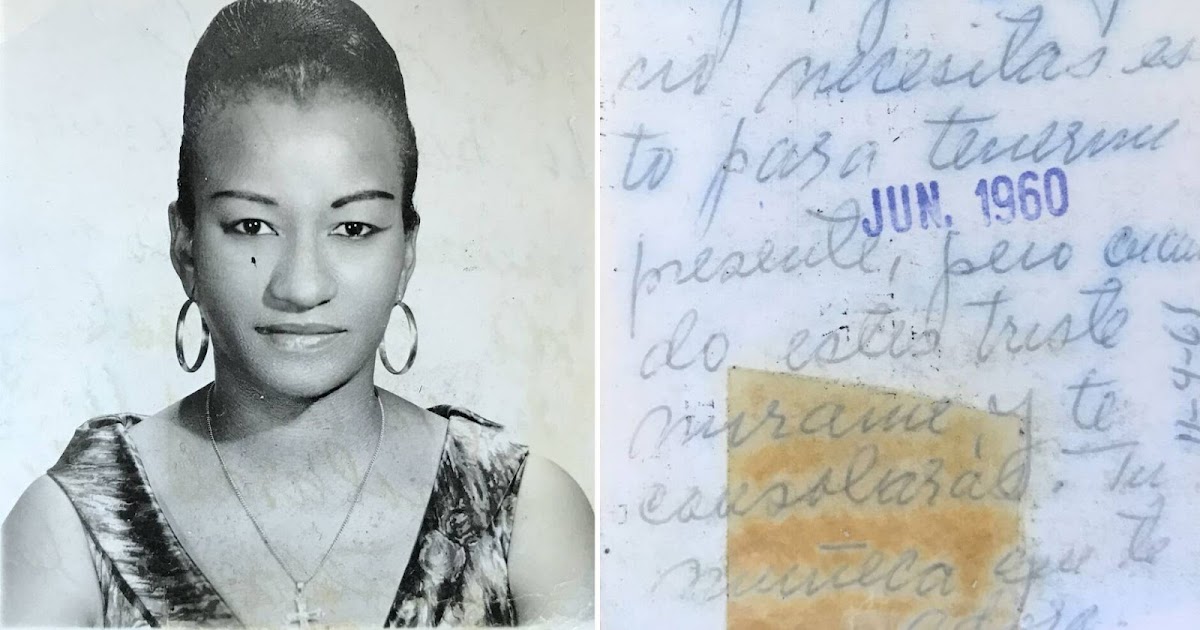 no necesitas es
to para tenerme
JUN. 1960
presente, pero cuan
do estés triste
mirame, y te
consolarás. Tu
muñeca que te
adora.
11-4-61